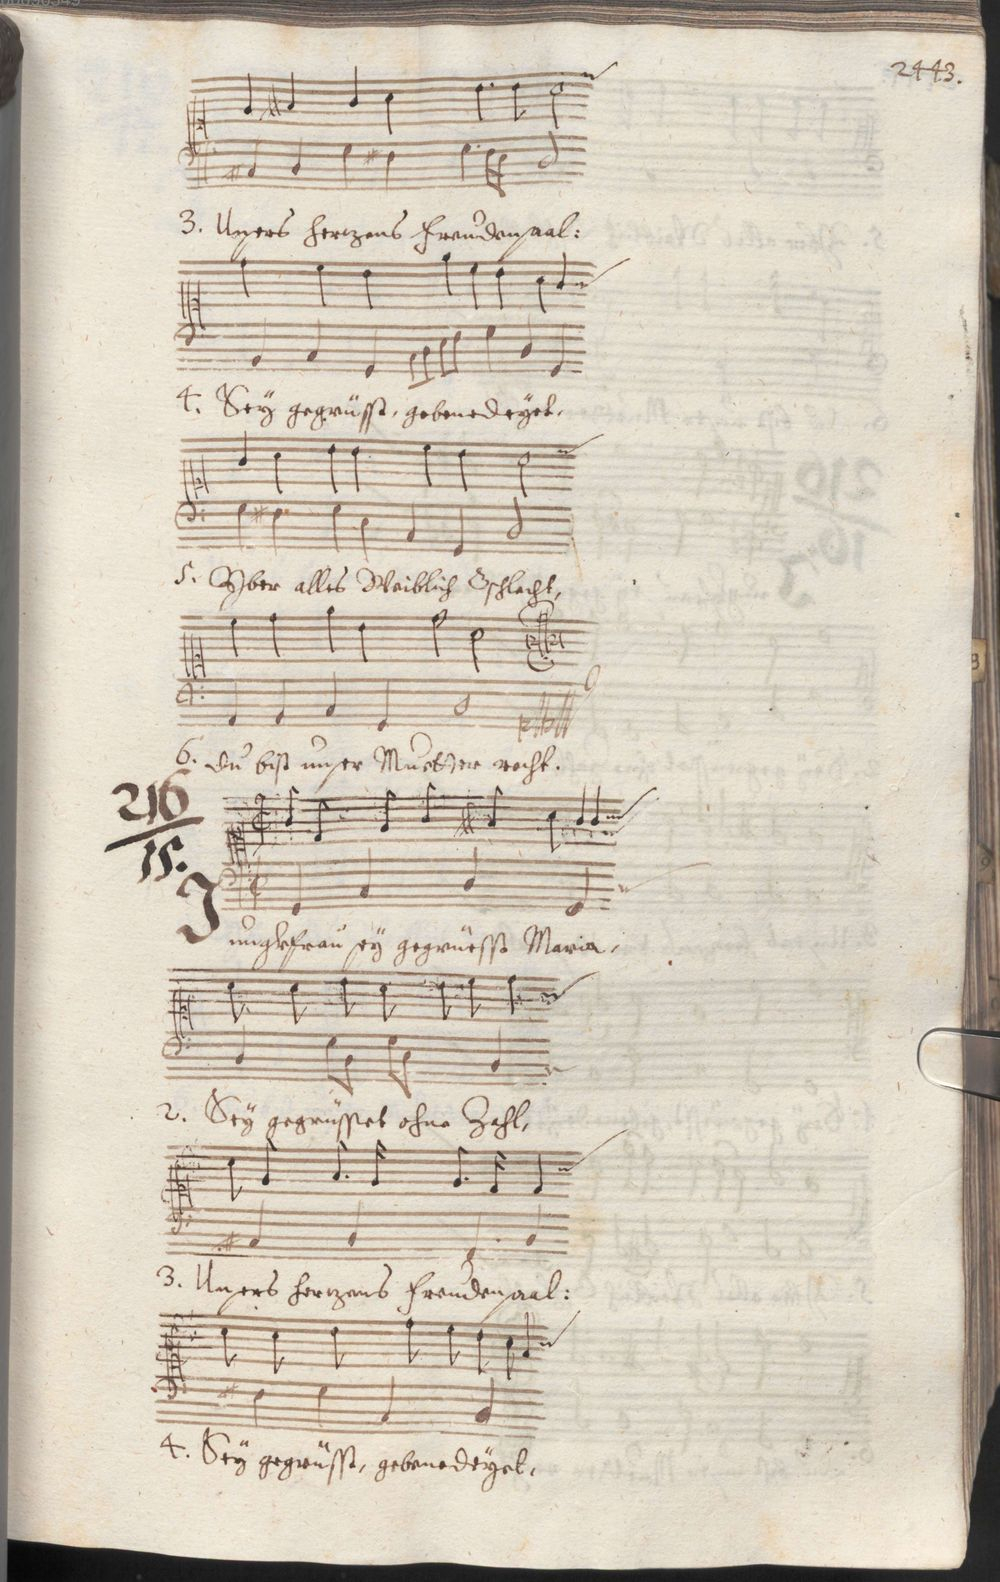 2443.
3. Unsers hertzens Freudensaal:
4. Seÿ gegrüsst, gebenedeÿet,
5. Yber alles Weiblich Gschlecht,
6. du bist unser Muetter recht.
216
15.
Jungkfrau seÿ gegrüesst Maria,
2. Seÿ gegrüsset ohne Zahl,
3. Unsers hertzens Freudensaal:
4. Seÿ gegrüsst, gebenedeÿet,